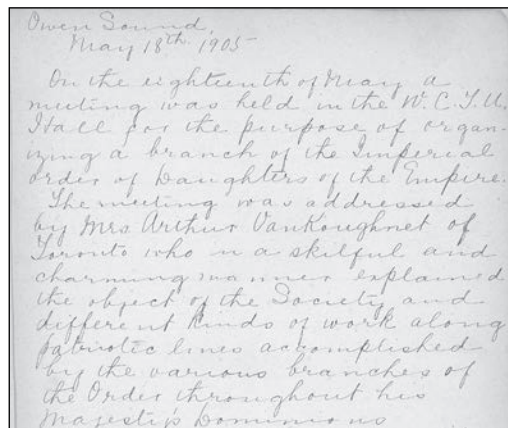 Owen Sound,
May 18th 1905
On the eighteenth of May a
meeting was held in the W.C.T.U.
Hall for the purpose of organ-
izing a branch of the Imperial
order of Daughters of the Empire.
The meeting was addressed
by Mrs Arthur VanKoughnet of
Toronto who in a skilful and
charming manner explained
the object of the Society and
different kinds of work along
patriotic lines accomplished
by the various branches of
the Order throughout his
Majesty's Dominions